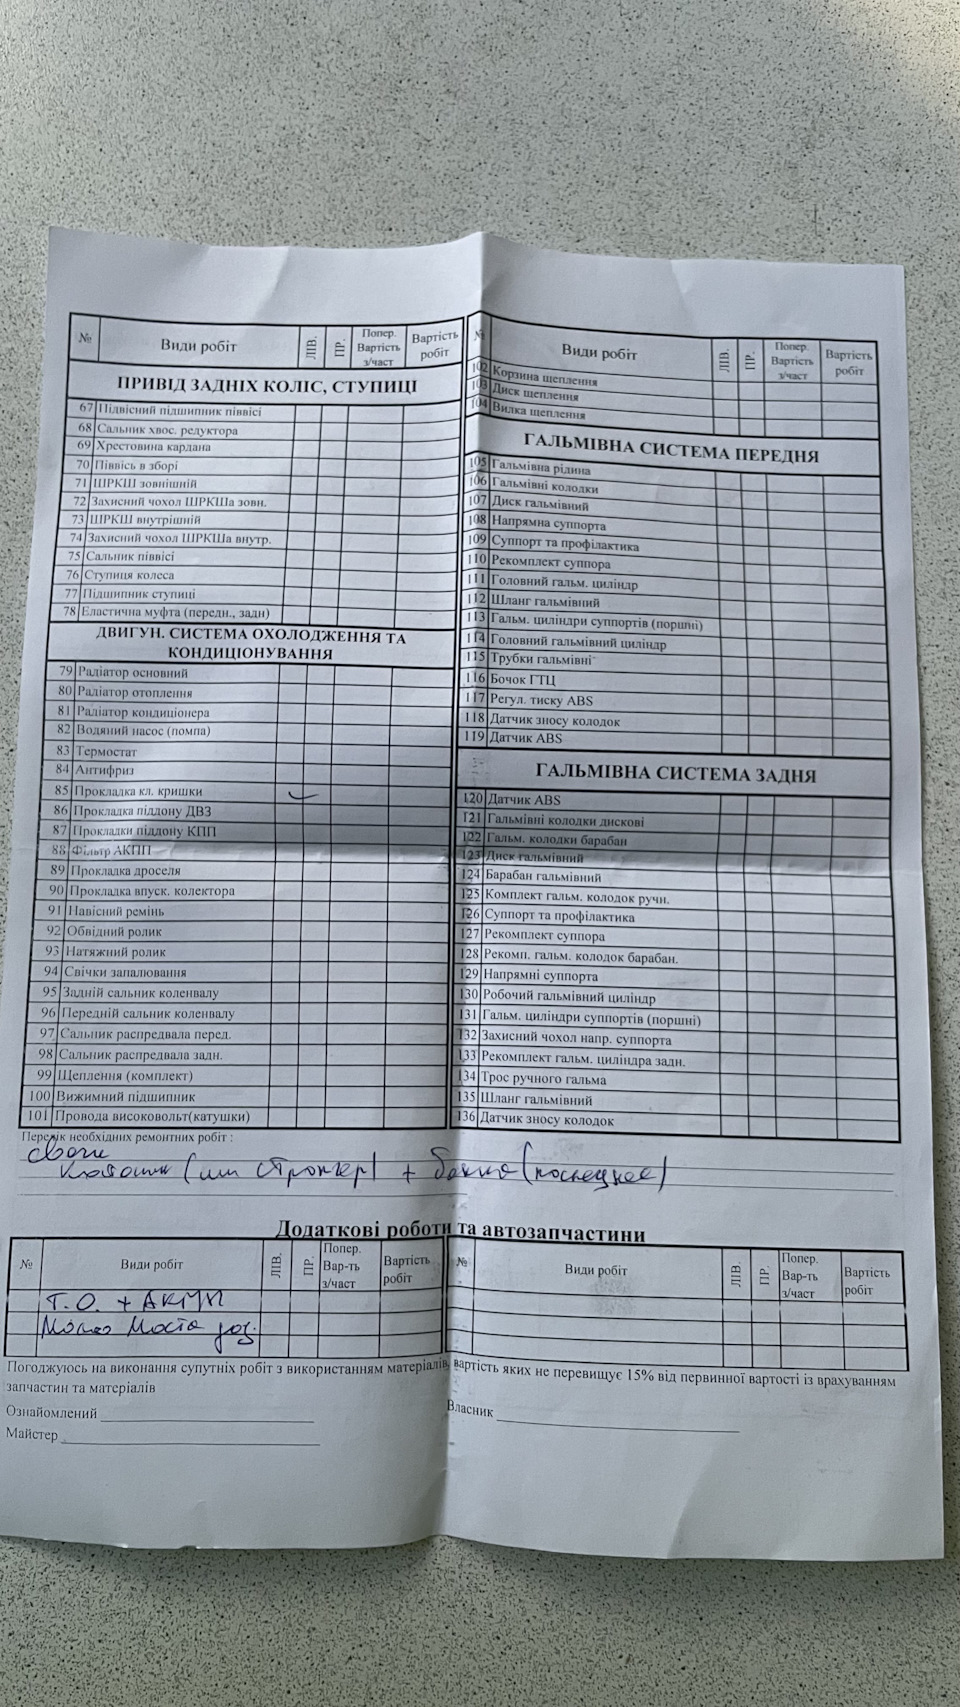 № Види робіт ЛІВ. ПР. Попер. Вартість з/част Вартість робіт
ПРИВІД ЗАДНІХ КОЛІС, СТУПИЦІ
67 Підвісний підшипник піввісі
68 Сальник хвос. редуктора
69 Хрестовина кардана
70 Піввісь в зборі
71 ШРКШ зовнішній
72 Захисний чохол ШРКШа зовн.
73 ШРКШ внутрішній
74 Захисний чохол ШРКШа внутр.
75 Сальник піввісі
76 Ступиця колеса
77 Підшипник ступиці
78 Еластична муфта (передн., задн)
ДВИГУН. СИСТЕМА ОХОЛОДЖЕННЯ ТА
КОНДИЦІОНУВАННЯ
79 Радіатор основний
80 Радіатор отоплення
81 Радіатор кондиціонера
82 Водяний насос (помпа)
83 Термостат
84 Антифриз
85 Прокладка кл. кришки
86 Прокладка піддону ДВЗ
87 Прокладки піддону КПП
88 Фільтр АКПП
89 Прокладка дроселя
90 Прокладка впуск. колектора
91 Навісний ремінь
92 Обвідний ролик
93 Натяжний ролик
94 Свічки запалювання
95 Задній сальник коленвалу
96 Передній сальник коленвалу
97 Сальник распредвала перед.
98 Сальник распредвала задн.
99 Щеплення (комплект)
100 Вижимний підшипник
101 Провода високовольт(катушки)
№ Види робіт ЛІВ. ПР. Попер. Вартість з/част Вартість робіт
102 Корзина щеплення
103 Диск щеплення
104 Вилка щеплення
ГАЛЬМІВНА СИСТЕМА ПЕРЕДНЯ
105 Гальмівна рідина
106 Гальмівні колодки
107 Диск гальмівний
108 Напрямна суппорта
109 Суппорт та профілактика
110 Рекомплект суппора
111 Головний гальм. циліндр
112 Шланг гальмівний
113 Гальм. циліндри суппортів (поршні)
114 Головний гальмівний циліндр
115 Трубки гальмівні
116 Бочок ГТЦ
117 Регул. тиску ABS
118 Датчик зносу колодок
119 Датчик ABS
ГАЛЬМІВНА СИСТЕМА ЗАДНЯ
120 Датчик ABS
121 Гальмівні колодки дискові
122 Гальм. колодки барабан
123 Диск гальмівний
124 Барабан гальмівний
125 Комплект гальм. колодок ручн.
126 Суппорт та профілактика
127 Рекомплект суппора
128 Рекомп. гальм. колодок барабан.
129 Напрямні суппорта
130 Робочий гальмівний циліндр
131 Гальм. циліндри суппортів (поршні)
132 Захисний чохол напр. суппорта
133 Рекомплект гальм. циліндра задн.
134 Трос ручного гальма
135 Шланг гальмівний
136 Датчик зносу колодок
Перелік необхідних ремонтних робіт :
свечи
(или стронгер) + (последнее)
Додаткові роботи та автозапчастини
№ Види робіт ЛІВ. ПР. Попер. Вар-ть з/част Вартість робіт
№ Види робіт ЛІВ. ПР. Попер. Вар-ть з/част Вартість робіт
Т.О. + АКПП
Масло Моста
Погоджуюсь на виконання супутніх робіт з використанням матеріалів, вартість яких не перевищує 15% від первинної вартості із врахуванням
запчастин та матеріалів
Ознайомлений Власник
Майстер